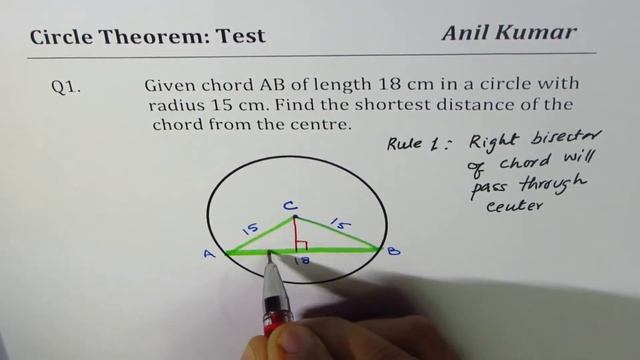 Circle Theorem: Test
Anil Kumar
Q1. Given chord AB of length 18 cm in a circle with
radius 15 cm. Find the shortest distance of the
chord from the centre.
Rule 1: Right bisector
of chord will
pass through
center
C
15 15
A B
18